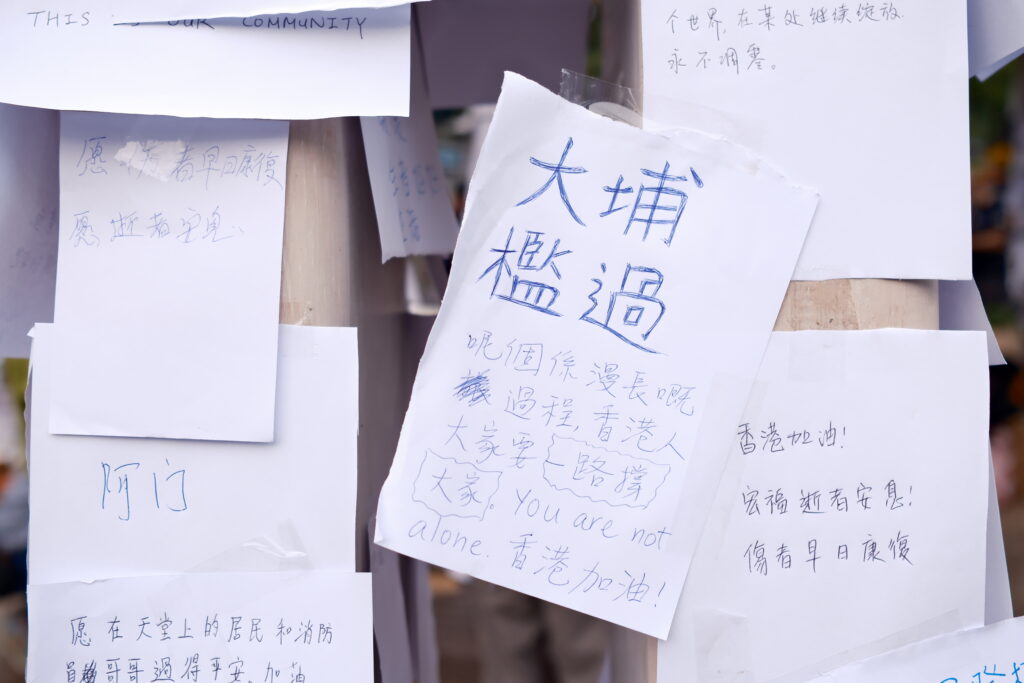 THIS IS OUR COMMUNITY
个世界,在某处继续绽放.
永不凋零。
愿 伤者早日康復
愿逝者安息、
大埔
檻過
呢個係漫長嘅
過程,香港人
大家要一路撐
大家。You are not
alone. 香港加油!
阿门
香港加油!
宏福逝者安息!
傷者早日康復
愿在天堂上的居民和消防
員哥哥過得平安。加油